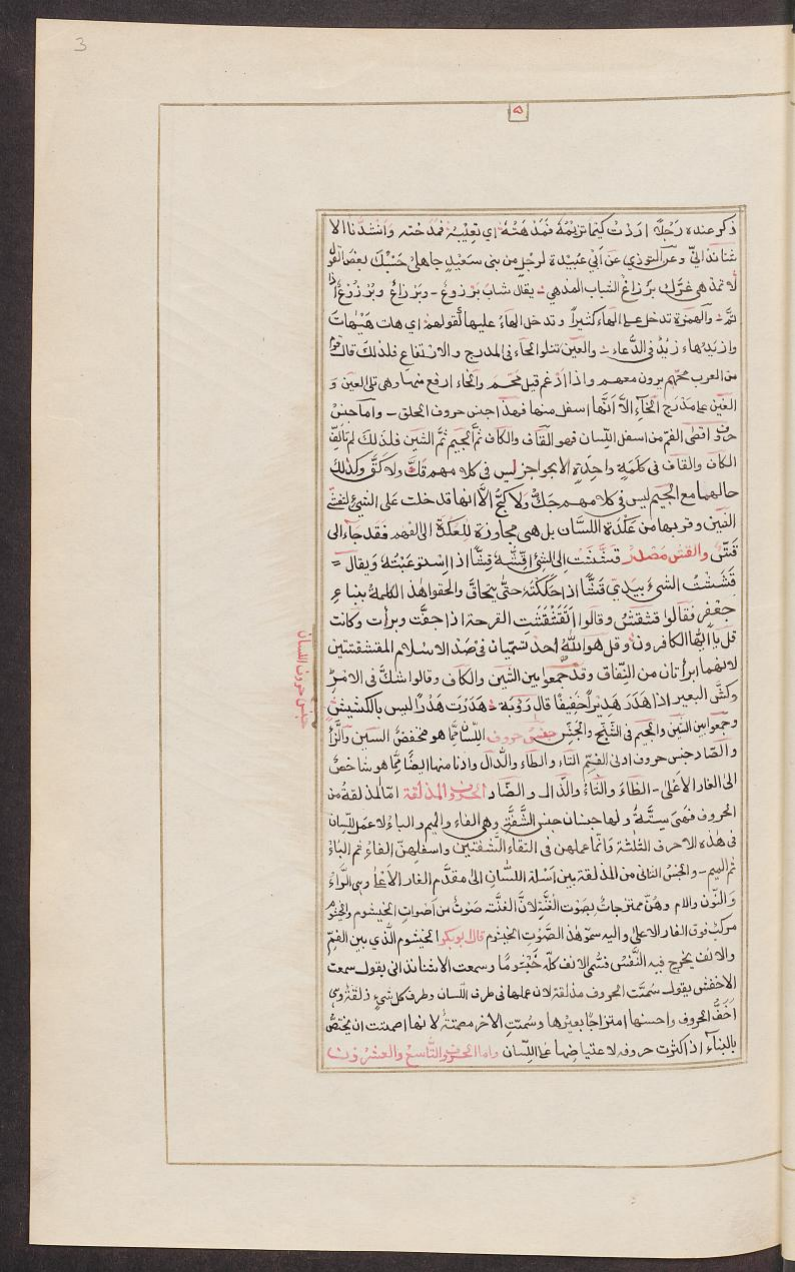 3
۵
ذكر عنده رَجُلاً اردت كيما تريمُهُ فَمَدَهْتُهُ اي تعِيْبُهُ فمدحته وانشدنا الا
شنانذانيّ وعن التوزي عن أبي عبيدة لرجل من بنى سَعيد جاهليّ حسبك بعض القول
لا تمذهى غرّك برزاغ الشباب المذهي يقال شاب بُرزوغ ـ وبرزاغ وبُرْزُوغ اذا
تمّ والهمزة تدخل على الهاء كثيراً وتدخل الهاءُ عليها لقولهم اي هات هَيْهات
وازيد هاء زيدُ في الدُّعاء والعين تتلوا الحاء في المدرج والارتفاع فلذلك قال قوم
من العرب محّهم يرون معهم واذا ادغم قيل محّم والخاء ارفع منها وهى تلى العين و
الغين على مَدْرَج الخآء الاّ اَنَّها اسفل منها فهذا جنس حروف الحلق ـ واما جنس
حروف اقصى الفمّ من اسفل اللّسان فهو القاف والكاف ثمّ الجيم ثمّ الشين فلذلك لم تألف
الكاف والقاف فى كلمة واحِدَةٍ الا بحواجز ليس فى كلامهم قكّ ولا كقّ وكذلك
حالهما مع الجيم ليس فى كلامهم جَكّ ولا كجّ الّا انها قد دخلت على الشين لتفشّى
الشين وقربها من عَكَدَة اللسّان بل هى مجاوزة للعكدة الى الفم فقد جآء الى
قشّ والقشّ مَصْدرُ قششتُ الى الشئ اقشّه قِشّاً اذا استوعَبْتُهُ وَيقال =
قَشَشْتُ الشئ بيَدي قَشّاً اذا حَكَكْتَهُ حتّى يتحاتّ والحقوا هٰذا الكلمة ببناء
جَعْفرٍ فقالوا قشقشُ وقالوا اَتَقَشْقَشَتِ القرحة اذا جفّت وبرأت وكانت
قل يا اَيّها الكافرون وقل هو اللهُ احدٌ تسمّيان فى صَدْر الاسلام المقشقشتين
لانهما ابرأتان من النّفاق وقد جمعوا بين الشين والكاف وقالوا شكّ فى الامر
وكشّ البعير اذا هَدَرَ هَدِيْراً خَفِيْفًا قال رؤبة هَدَرتُ هَدْراً ليس بالكشيشِ
وجمعوا بين الشين والجيم فى الشّجّ والجشّ جنس حروف اللسان ممّا هو منخفضُ السين والزّاُ
والصّاد جنس حروف ادنىَ الفيّم التاء والطّاء والدّال وادنا منها ايضًا ممّا هو شاخصٌ
الى الغار الاَعلى ـ الظاءُ والثّاءُ والذّال والضّاد الحروف المذلقة امّا المذلقة من
الحروف فهى ستّةٌ ولها جنسان جنس الشّفةِ وهى الفاء والميم والباء لا عمل للسان
فى هٰذه الاحرف الثلثة وانّما عملهن فى التقاء الشفتين واسفلهنّ الفاء ثم الباءُ
ثم الميم ـ والجنسُ الثانى من المذلقة بين اَسَلة اللسّان الى مقدّم الغار الاَعلى وهى الرّاءُ
وَالنّون والام وهُنّ ممتزجاتٌ بصَوْت الغنّةِ لانّ الغنّة صَوتٌ من اصوات الخيشوم والخيشوم
مركب فوق الغار الاعلى واليه سموّ هٰذا الصَّوْت الخيشوم قال ابوبكر الخيشوم الّذي بين الفمّ
والانف يخرج فيه النَّفَسُ فسُمّى الانف كلّه خَيْشومًا وسمعت الاشنانذانى يقول سمعت
الاخفش يقول سُميّت الحروف مذلقة لان عملها فى طرف اللسان وطرف كل شيءٍ ذلقة وهى
اَخَفُّ الحروف واحسنها امتزاجًا بعيْرِها وسُمّتِ الاُخر مصمتةً لانها اصمتت ان يختصّ
بالبنآءِ اذا كثرت حروفه لاعتياصها على اللّسان واما الحروف التّاسع والعشرون
جنس حروف اللسان